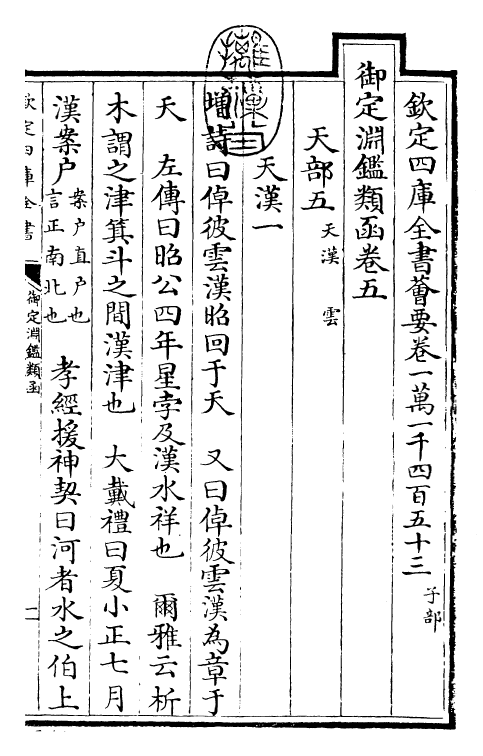 欽定四庫全書薈要卷一萬一千四百五十三 子部
御定淵鑑類函卷五
天部五 天漢 雲
天漢一
增詩曰倬彼雲漢昭回于天 又曰倬彼雲漢為章于
天 左傳曰昭公四年星孛及漢水祥也 爾雅云析
木謂之津箕斗之間漢津也 大戴禮曰夏小正七月
漢案户 案户直户也言正南北也 孝經援神契曰河者水之伯上
欽定四庫全書
御定淵鑑類函
一